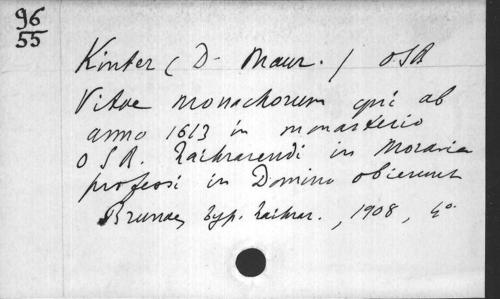 96
55
Kinter (D. Maur.) OSB
Vitae monachorum qui ab
anno 1613 in monasterio
OSB. Raihradendi in Moravia
professi in Domino obierunt
Brunae, typ. Raihrad., 1908, 4°.